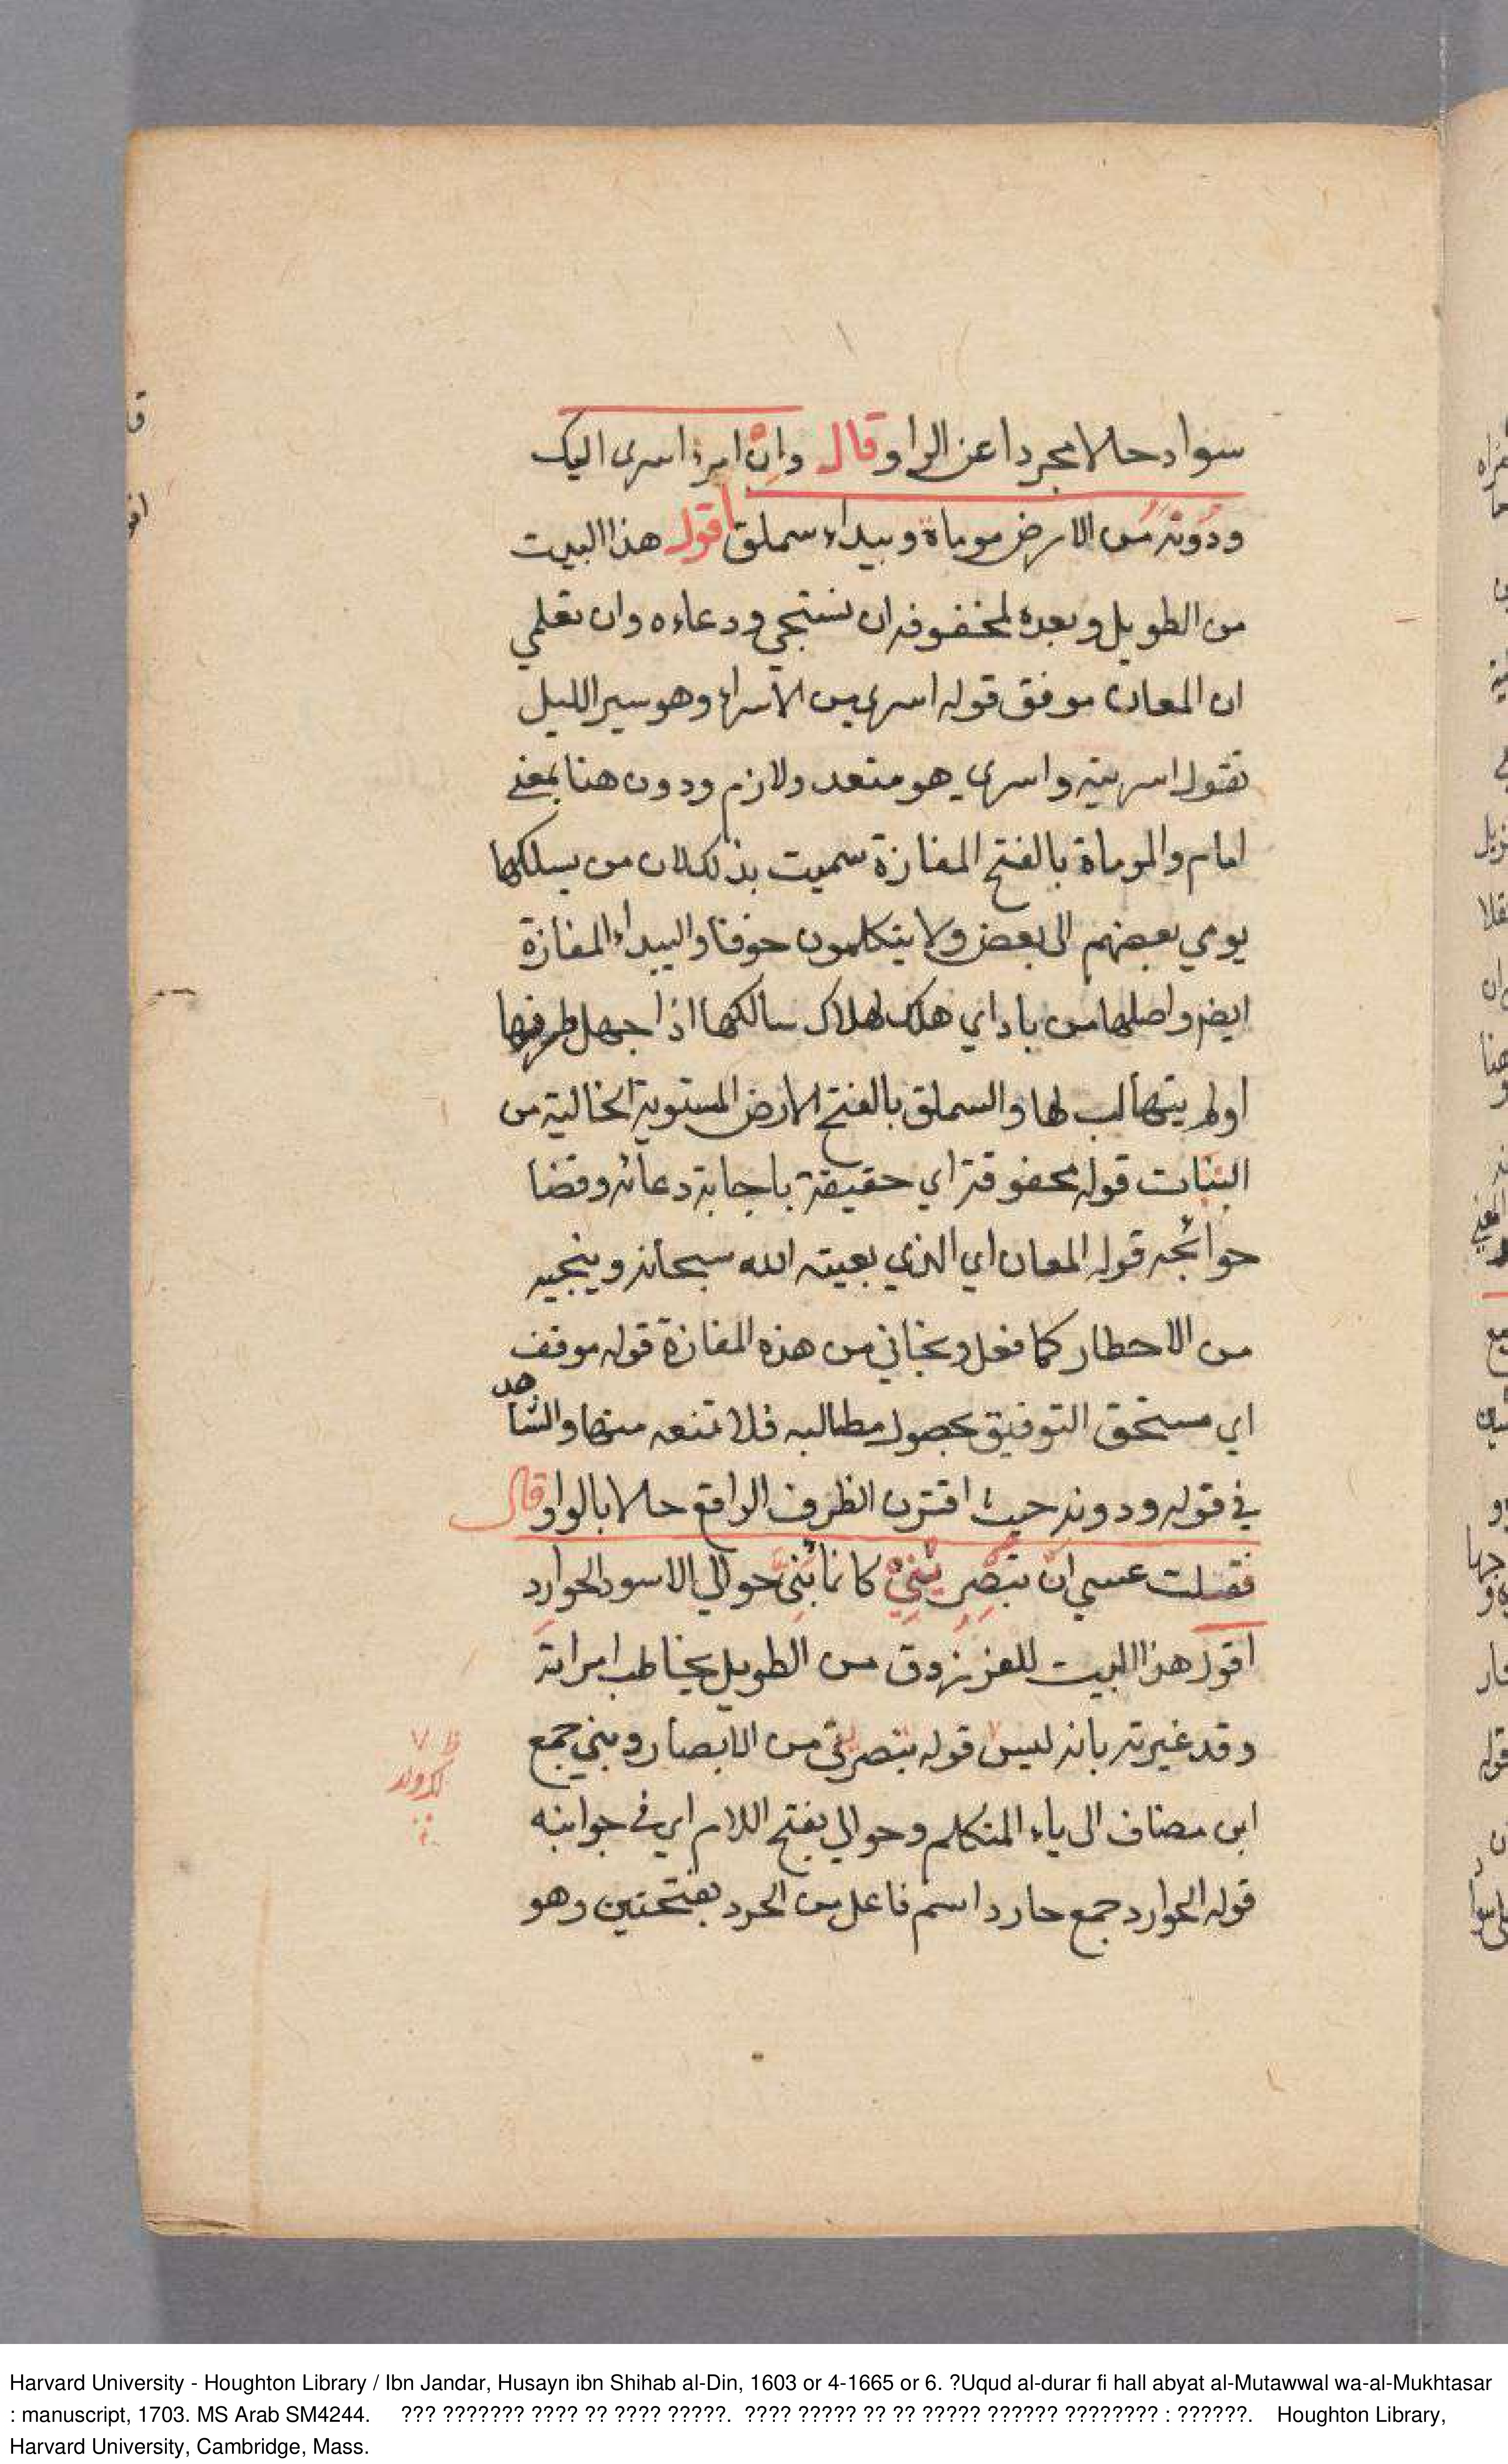 سواد حالا مجردا عن الواو قال وان امرء اسرى اليك
ودونه من الارض موماة وبيداء سملق اقول هذا البيت
من الطويل وبعده لمحقوقه ان تستجيي ودعاءه وان تعلمي
ان المعان موفق قوله اسرى من الاسراء وهو سير الليل
تقول اسريته واسرى هو متعد ولازم ودون هنا بمعنى
امام والموماة بالفتح المفازة سميت بذلك لان من يسلكها
يومي بعضهم الى بعض ولا يتكلمون خوفا والبيداء المفازة
ايضر واصلها من باد اي هلك لهلاك سالكها اذا جهل طرقها
اولم يتهأ لها والسملق بالفتح الارض المستوية الخالية من
النبات قوله محفوقة اي حقيقة باجابة دعائه وقضا
حوائجه قوله المعان اي الذي يعينه الله سبحانه وينجيه
من الاخطار كما فعل ونجاني من هذه المفازة قوله موفق
اي مستحق التوفيق بحصول مطالبه فلا تمنعه منها والشاهد
في قوله ودونه حيث اقترن الظرف الواقع حالا بالواو قال
فقلت عسى ان تبصريني كانما بني حوالي الاسود الحوارد
اقول هذا البيت للفرزدق من الطويل يخاطب امراته
وقد عيرته بانه ليس قوله تبصريني من الابصار وبني جمع
ظ ٧
له ولد
ابن مضاف الى ياء المتكلم وحوالي بفتح اللام اي في جوانبه
قوله الحوارد جمع حارد اسم فاعل من الحرد بفتحتين وهو
Harvard University - Houghton Library / Ibn Jandar, Husayn ibn Shihab al-Din, 1603 or 4-1665 or 6. ?Uqud al-durar fi hall abyat al-Mutawwal wa-al-Mukhtasar
: manuscript, 1703. MS Arab SM4244. ??? ??????? ???? ?? ???? ?????. ???? ????? ?? ?? ????? ?????? ???????? : ??????. Houghton Library,
Harvard University, Cambridge, Mass.